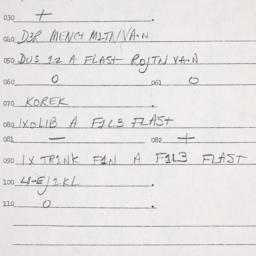 030 +
040 D3R MENCH M2TN/VA·N
050 DUS 12 A FLAST ROJTN VAIN
060 O 061 O
070 KOREK
080 IXOLIB A F1L3 FLAST
081 — 082 +
090 IX TR1NK F1N A F1L3 FLAST
100
110 O